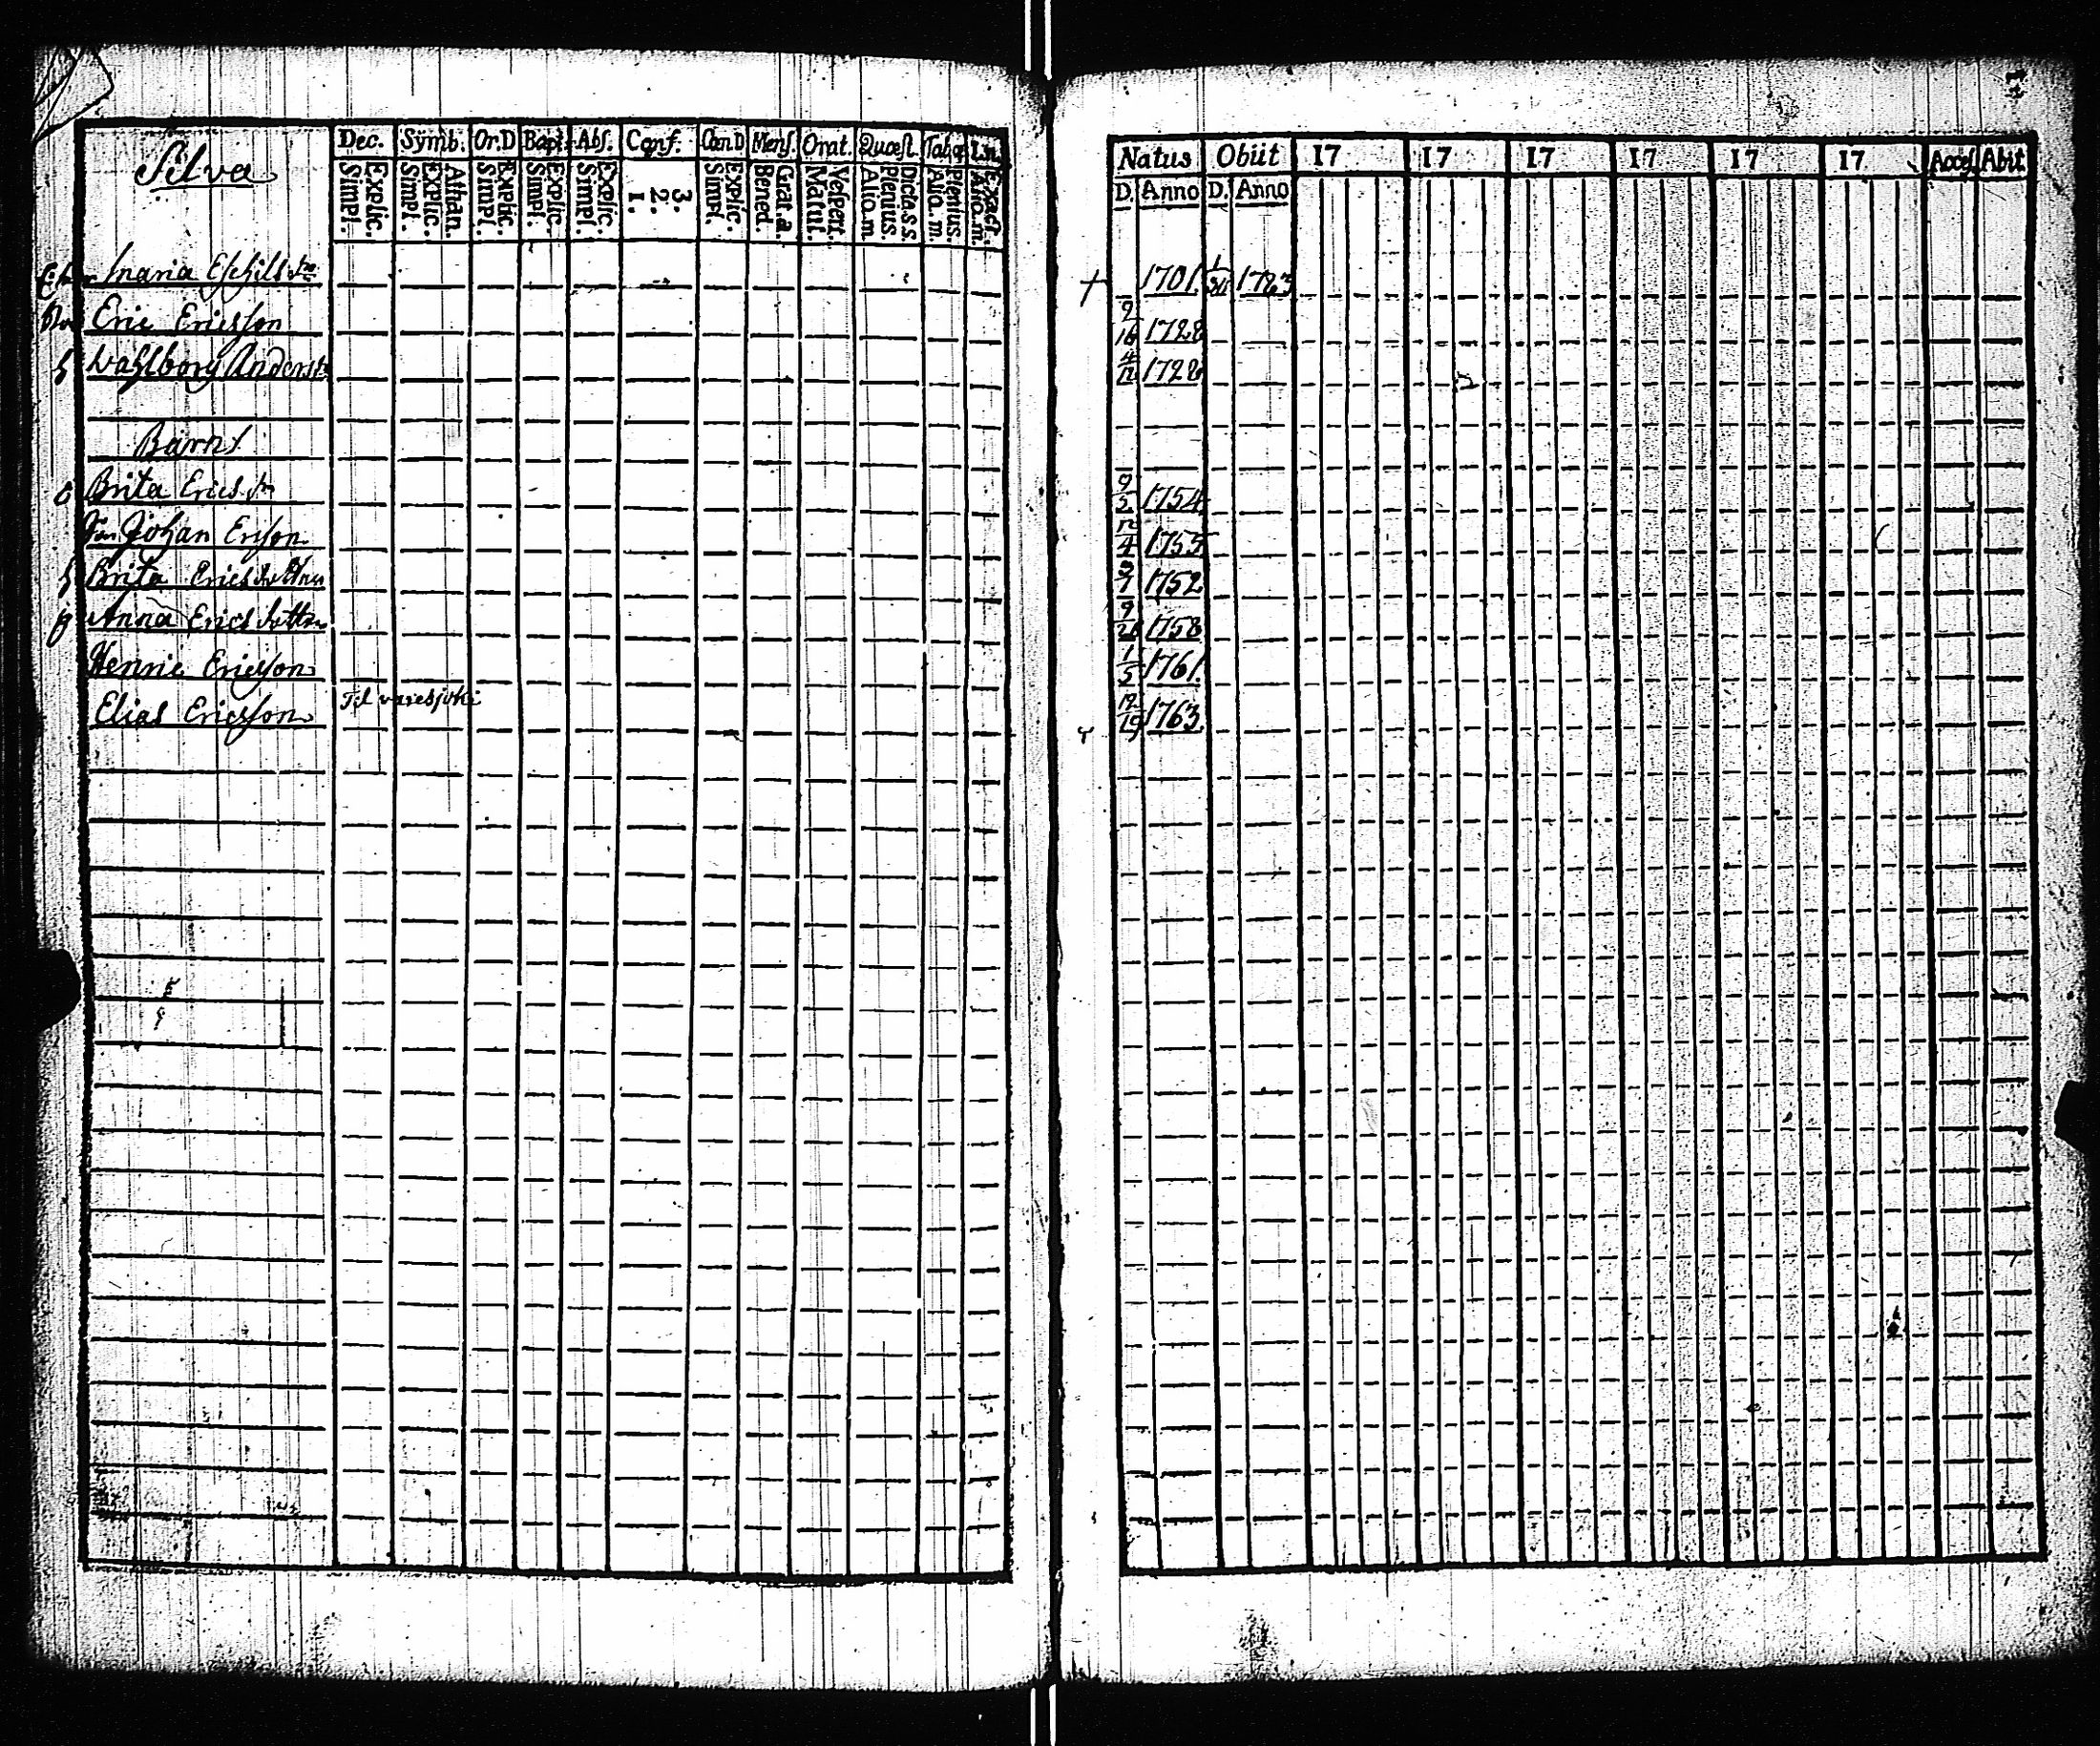 Silva
Dec. Symb. Or.D Bapt. Abs. Conf. Cœn.D Mens. Orat. Quæst. Tab.
Explic. Simpl.
Athan. Explic. Simpl.
Explic. Simpl.
Explic. Simpl.
Explic. Simpl.
3. 2. 1.
Explic. Simpl.
Grat. a. Bened.
Vespert. Matut.
Dicta. s.s. Plenius. Alio. m
Plenius. Alio. m.
Exact. Alio. m.
Maria Eschils dr
Eric Ericsson
Wahlborg Anders dr
Barn
Brita Erics dr
Johan Ersson
h Brita Ericsdotter
Anna Ericsdotter
Hennric Ericsson
Elias Ericsson Til varesjoki
Natus Obiit 17 17 17 17 17 17 Acces Abit
D. Anno D. Anno
† 1701 1783
9/16 1728
4/12 1728
9/5 1754
12/4 1755
1752
9/28 1758
1/5 1761
12/19 1763